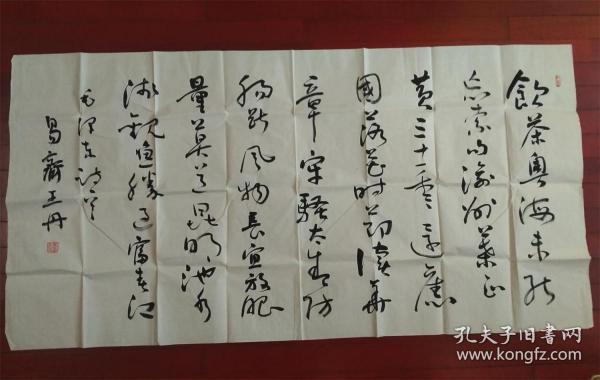 飲茶粵海未能
忘索句渝州葉正
黄三十一年還舊
國落花时节讀華
章牢騷太盛防
腸断风物長宜放眼
量莫道昆明池水
浅觀鱼勝过富春江
毛泽东诗
齋王丹
孔夫子旧书网
www.kongfz.com